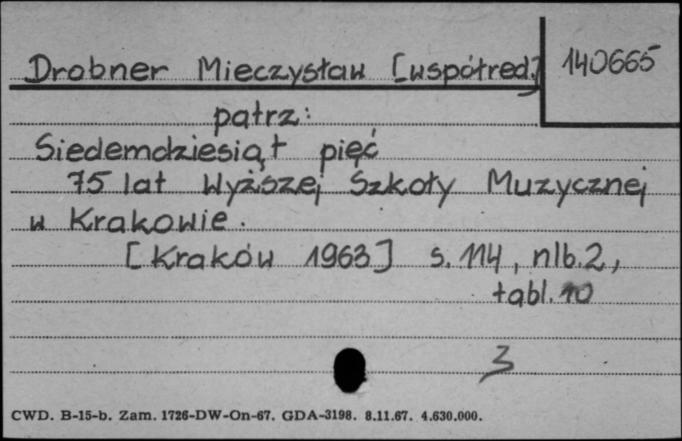 Drobner Mieczysław [współred.] 140665
patrz:
Siedemdziesiąt pięć
75 lat Wyższej Szkoły Muzycznej
w Krakowie.
[Kraków 1963] s. 114, nlb.2,
tabl. 10
3
CWD. B-15-b. Zam. 1726-DW-On-67. GDA-3198. 8.11.67. 4.630.000.